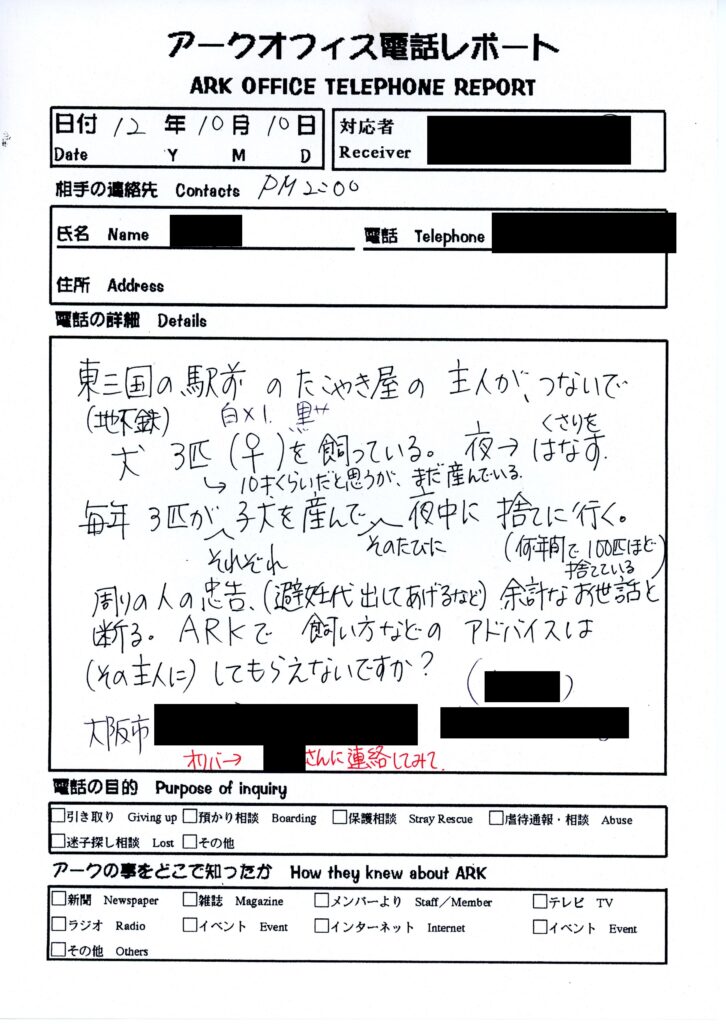 アークオフィス電話レポート
ARK OFFICE TELEPHONE REPORT
日付 12 年 10 月 10 日
Date Y M D
対応者
Receiver
相手の連絡先 Contacts PM 2:00
氏名 Name
電話 Telephone
住所 Address
電話の詳細 Details
東三国の駅前 のたこやき屋の 主人が、つないで
(地下鉄) 白×1. 黒 くさりを
犬 3匹 (♀)を 飼っている。 夜→ はなす.
↳ 10才くらいだと思うが、まだ産んでいる.
毎年 3匹が 子犬を 産んで 夜中に 捨てに行く。
それぞれ そのたびに (何年間で 100匹ほど
捨てている)
周りの人の忠告、(避妊代 出してあげるなど) 余計なお世話と
断る。 ARKで 飼い方などの アドバイスは
(その主人に) してもらえないですか? ( )
大阪市
オリバー→ さんに連絡してみて.
電話の目的 Purpose of inquiry
□引き取り Giving up □預かり相談 Boarding □保護相談 Stray Rescue □虐待通報・相談 Abuse
□迷子探し相談 Lost □その他
アークの事をどこで知ったか How they knew about ARK
□新聞 Newspaper □雑誌 Magazine □メンバーより Staff／Member □テレビ TV
□ラジオ Radio □イベント Event □インターネット Internet □イベント Event
□その他 Others